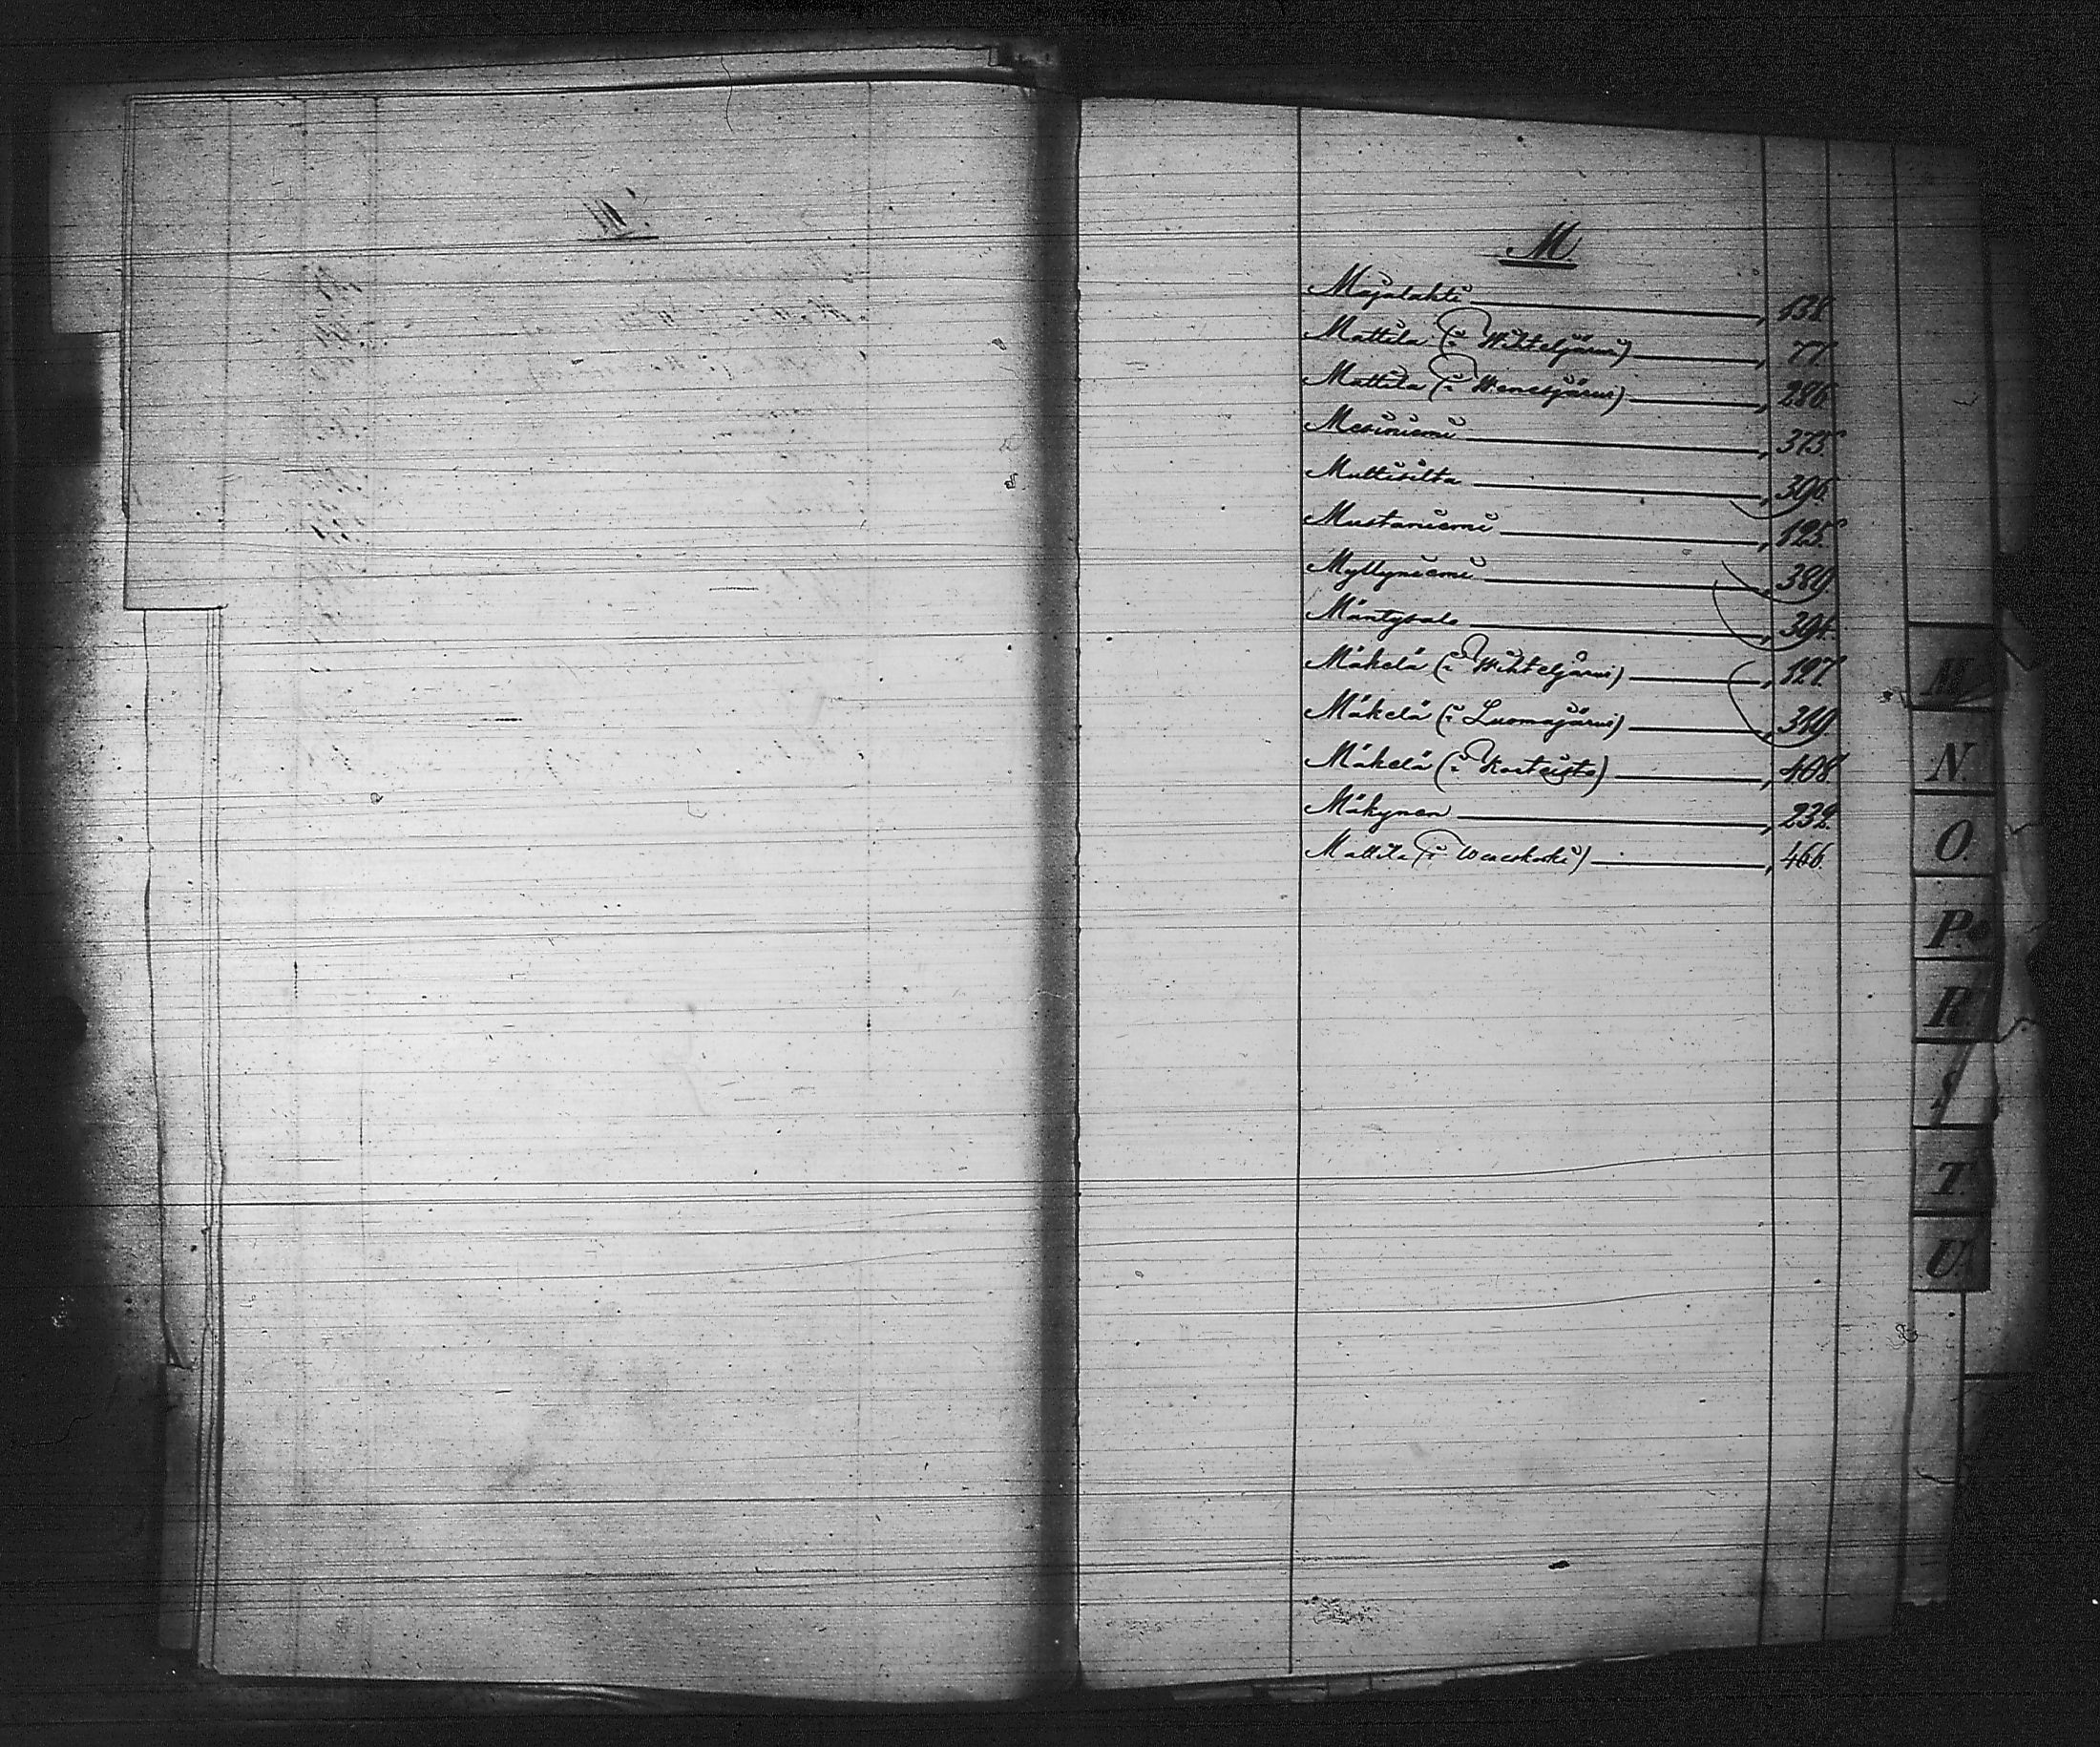 M.
Majalahti , 138.
Mattila (i Wihteljärvi) , 77.
Mattila (i Wenesjärvi) , 286.
Mesiniemi , 373.
Multisilta , 396.
Mustaniemi , 125.
Myllyniemi , 389.
Mäntysalo , 391.
Mäkelä (i Wihteljärvi) , 127.
Mäkelä (i Luomajärvi) , 349.
Mäkelä (i Karteisto) , 408.
Mäkynen , 232.
Mattila (i Weneskoski) , 466.
M
N.
O.
P.
R.
S
T.
U.